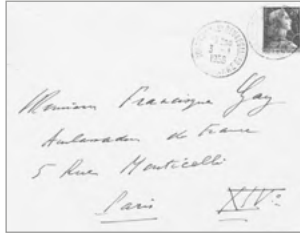 Monsieur Francisque Gay
Ambassadeur de France
5 Rue Monticelli
Paris XIVe